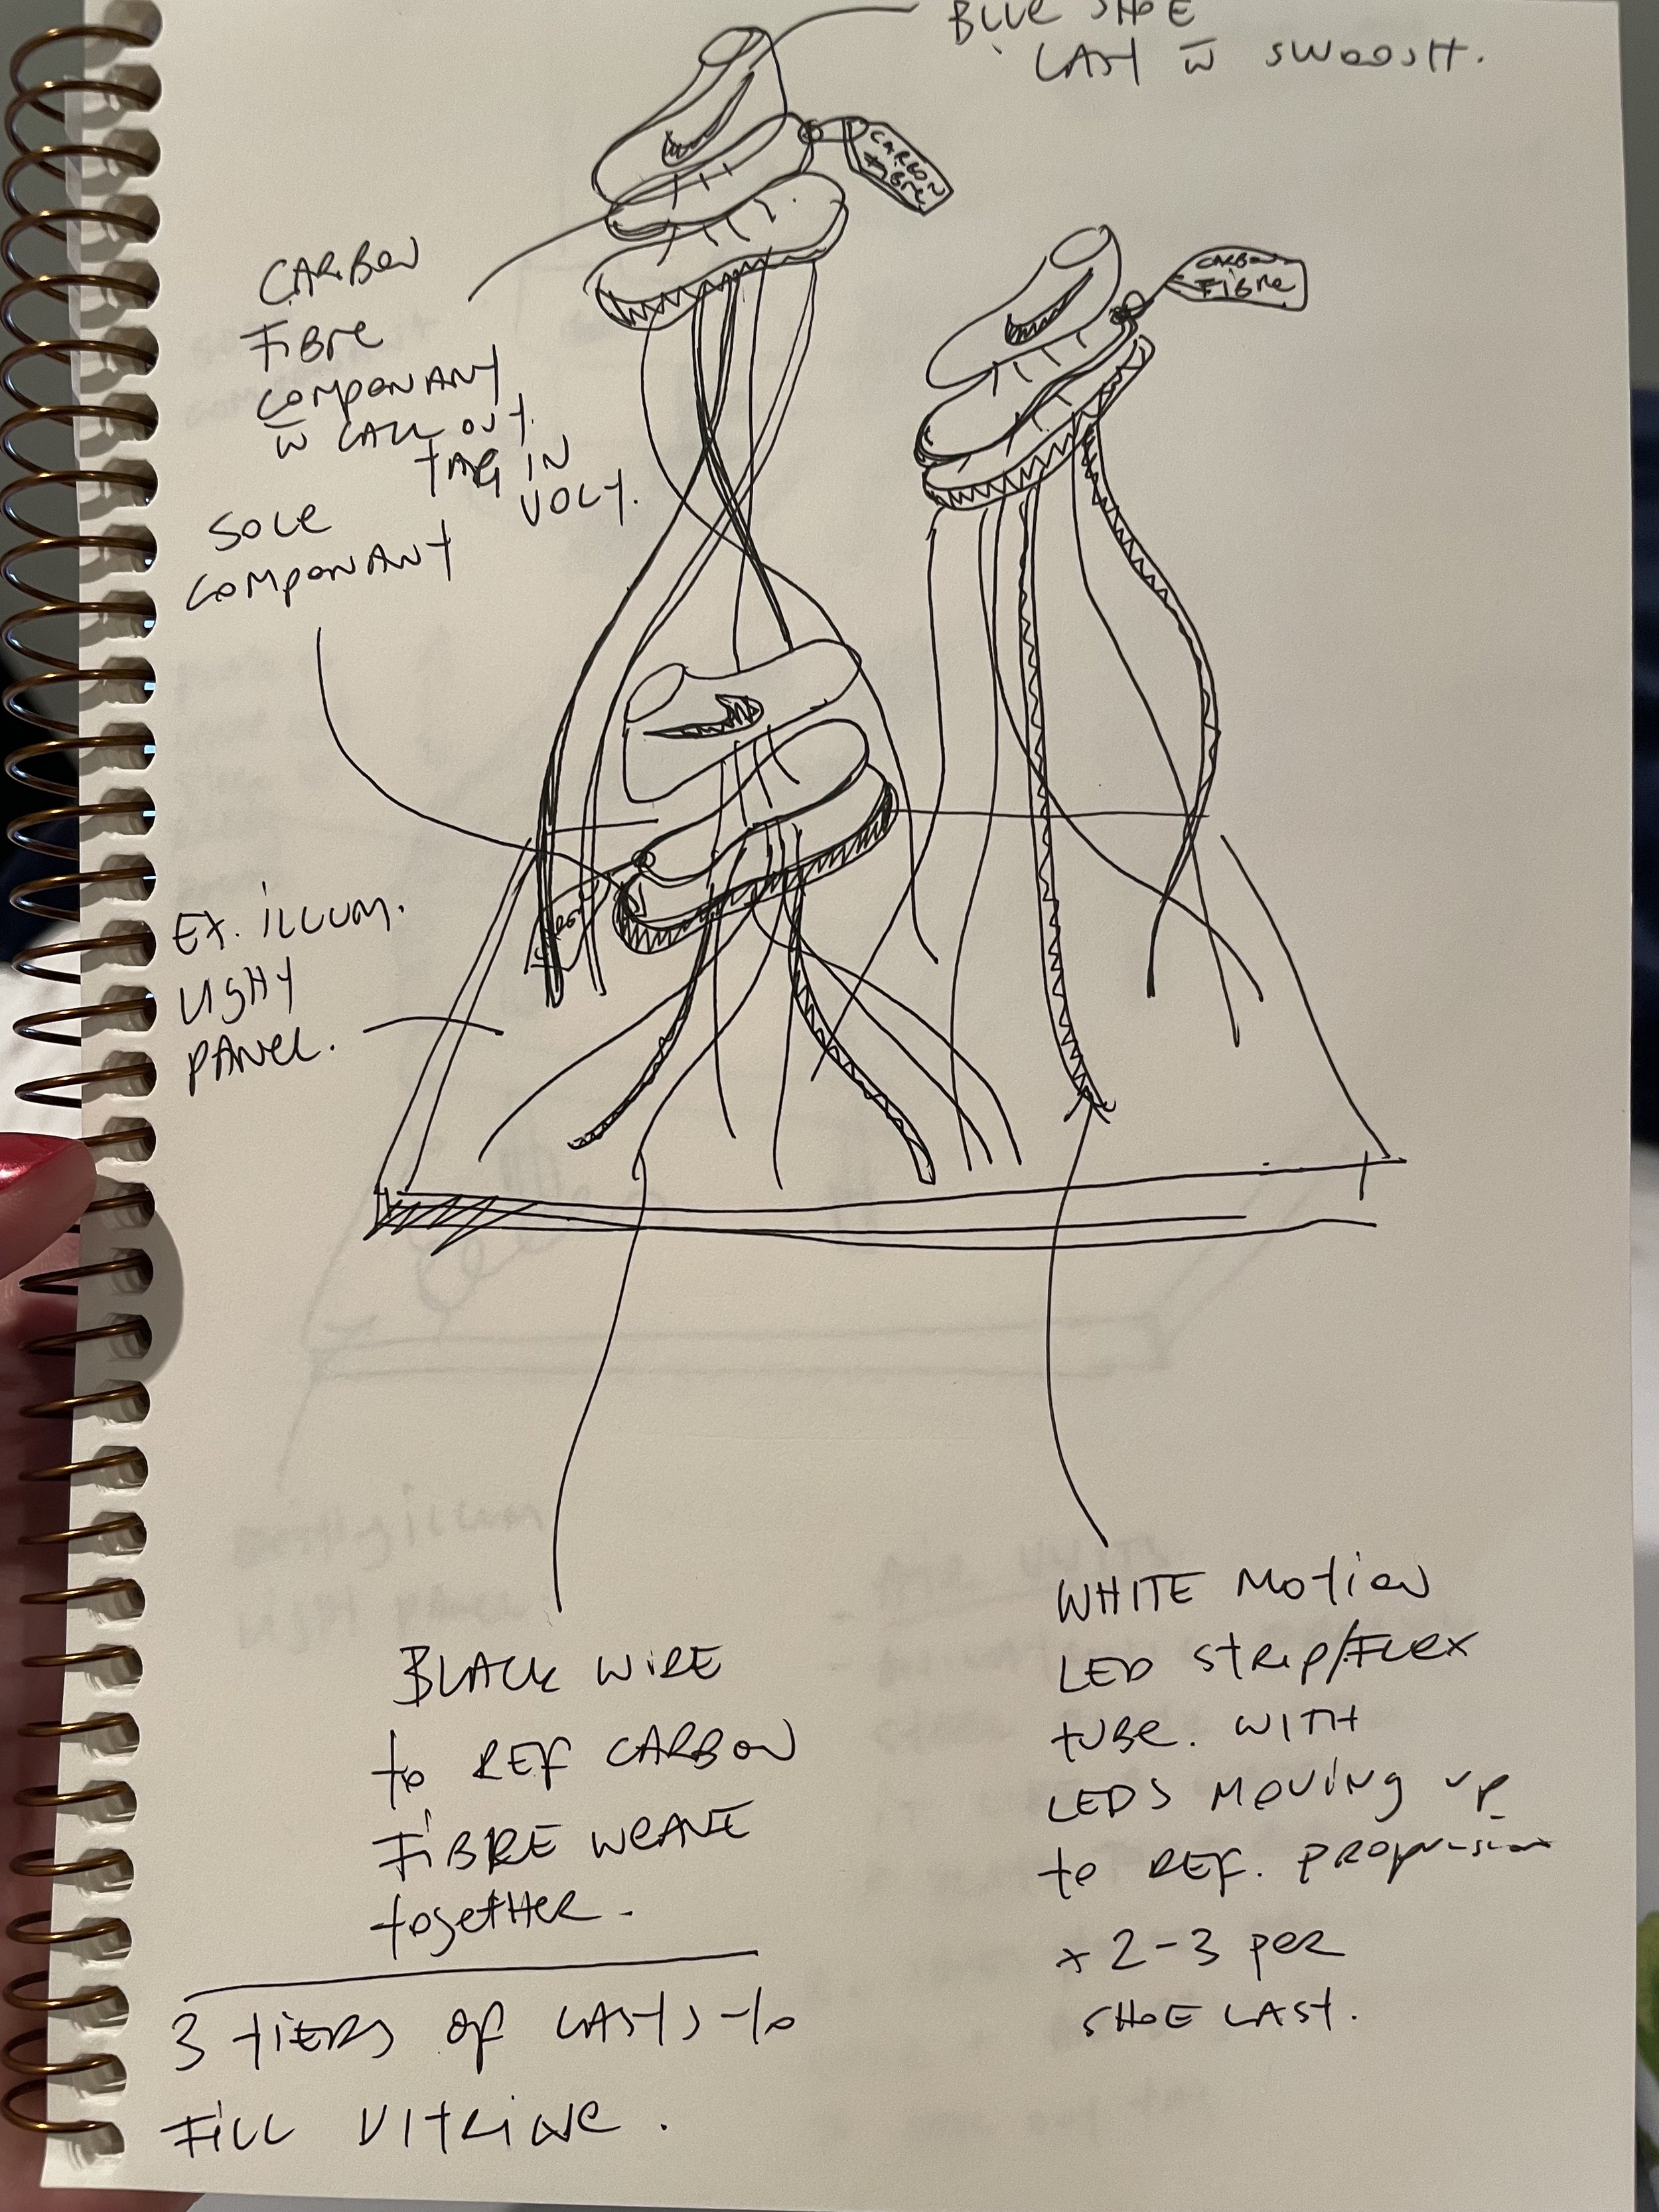 BLUE SHOE
LAST W SWOOSH.
CARBON
FIBRE
CARBON
FIBRE
CARBON
FIBRE
COMPONANT
W CALL OUT
TAG IN
VOLT.
SOLE
COMPONANT
EX. ILLUM.
LIGHT
PANEL.
BLACK WIRE
to REF CARBON
FIBRE WEAVE
together.
3 tiers of LASTS to
FILL VITRINE.
WHITE Motion
LED strip/FLEX
tube. WITH
LEDS MOVING UP
to REF. PROPULSION
x 2-3 per
SHOE LAST.